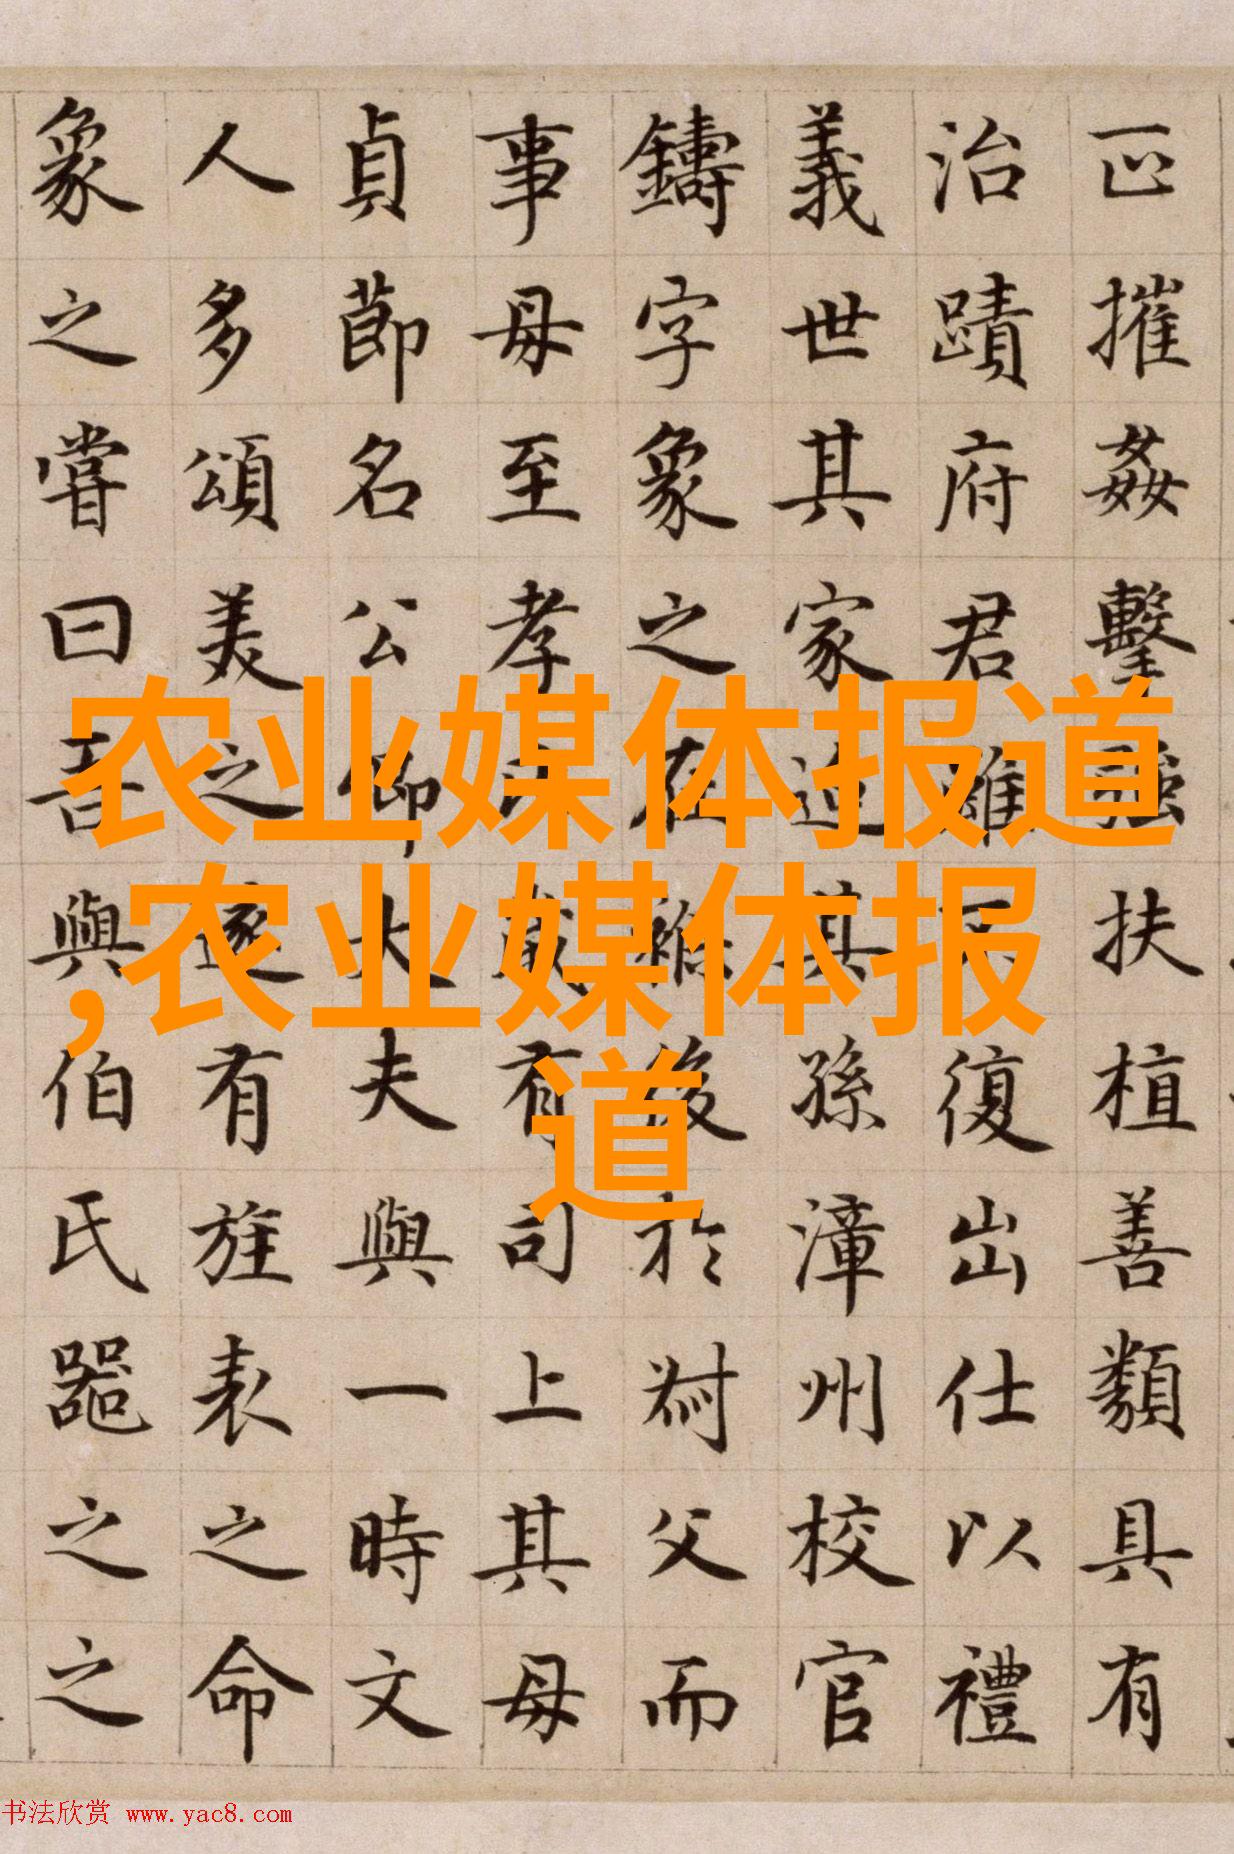 摧姦擊强扶植善類具有
治蹟府君雖不復出仕以禮
義世其家迨其孫漳州校官
鑄字象之在後於父而
事母至孝歲有司上其母
貞節名公卿大夫與一時文
人多頌美之遂有旌表之命
象之嘗曰吾與伯氏器之之
农业媒体报道
,农业媒体报
道
书法欣赏 www.yac8.com